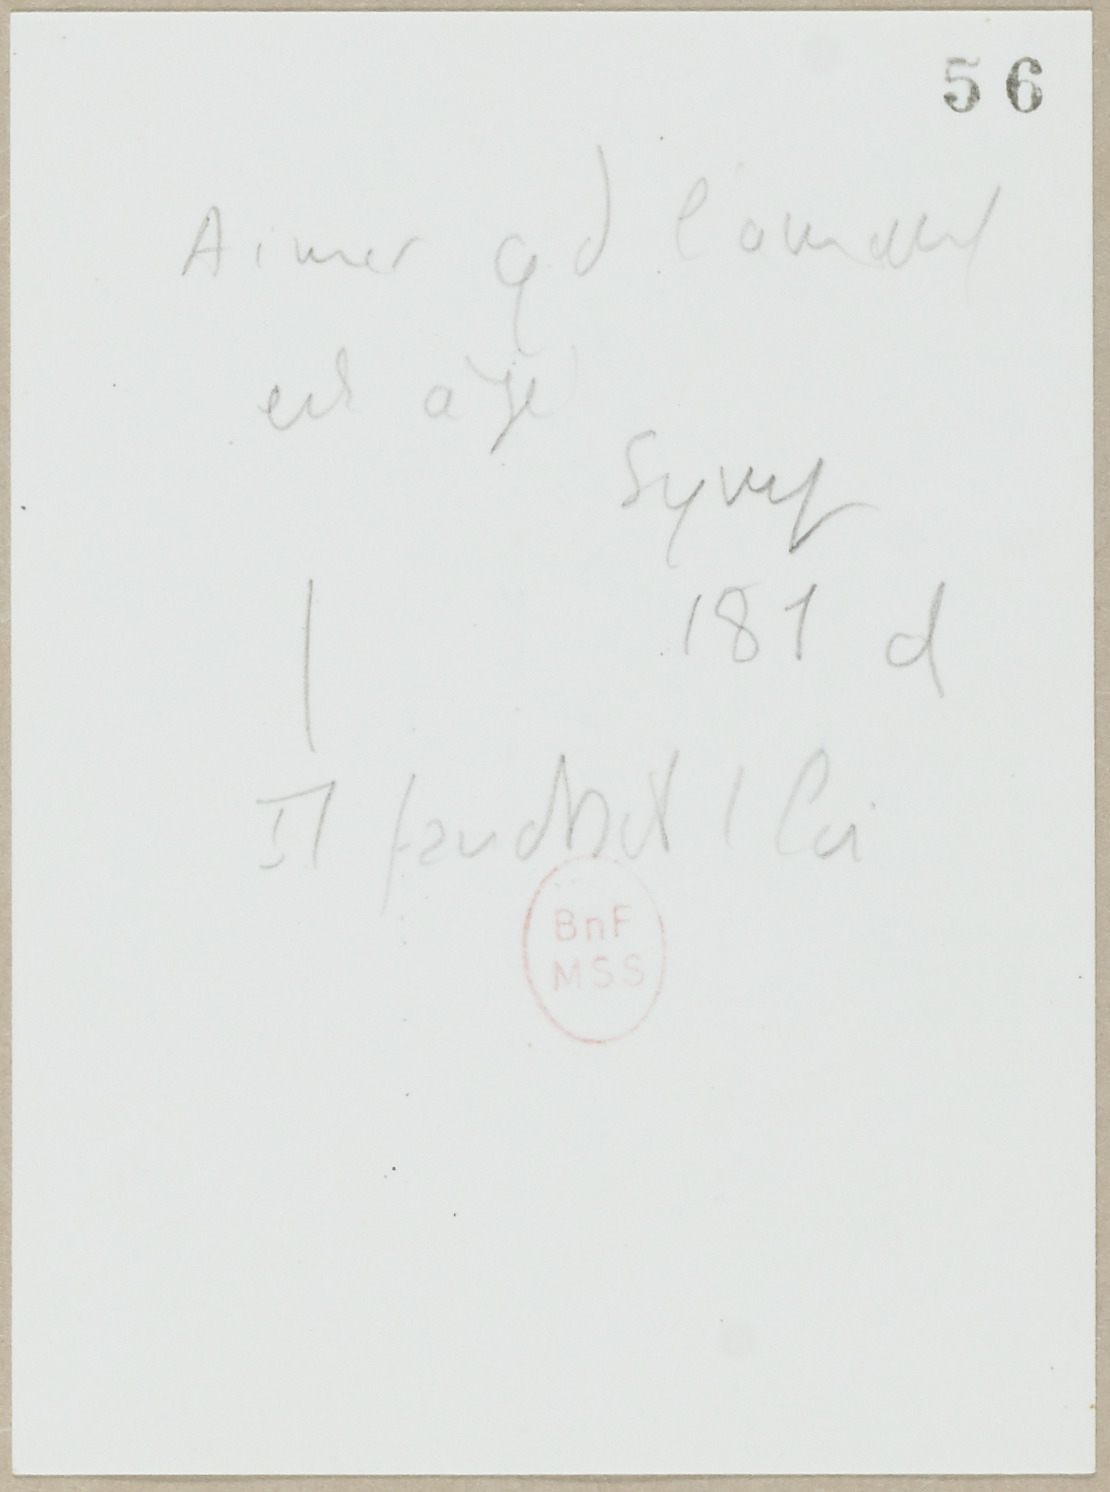 56
Aimer qd l'amant
est âgé
Symp
181 d
Il faudrait 1 loi
BnF
MSS